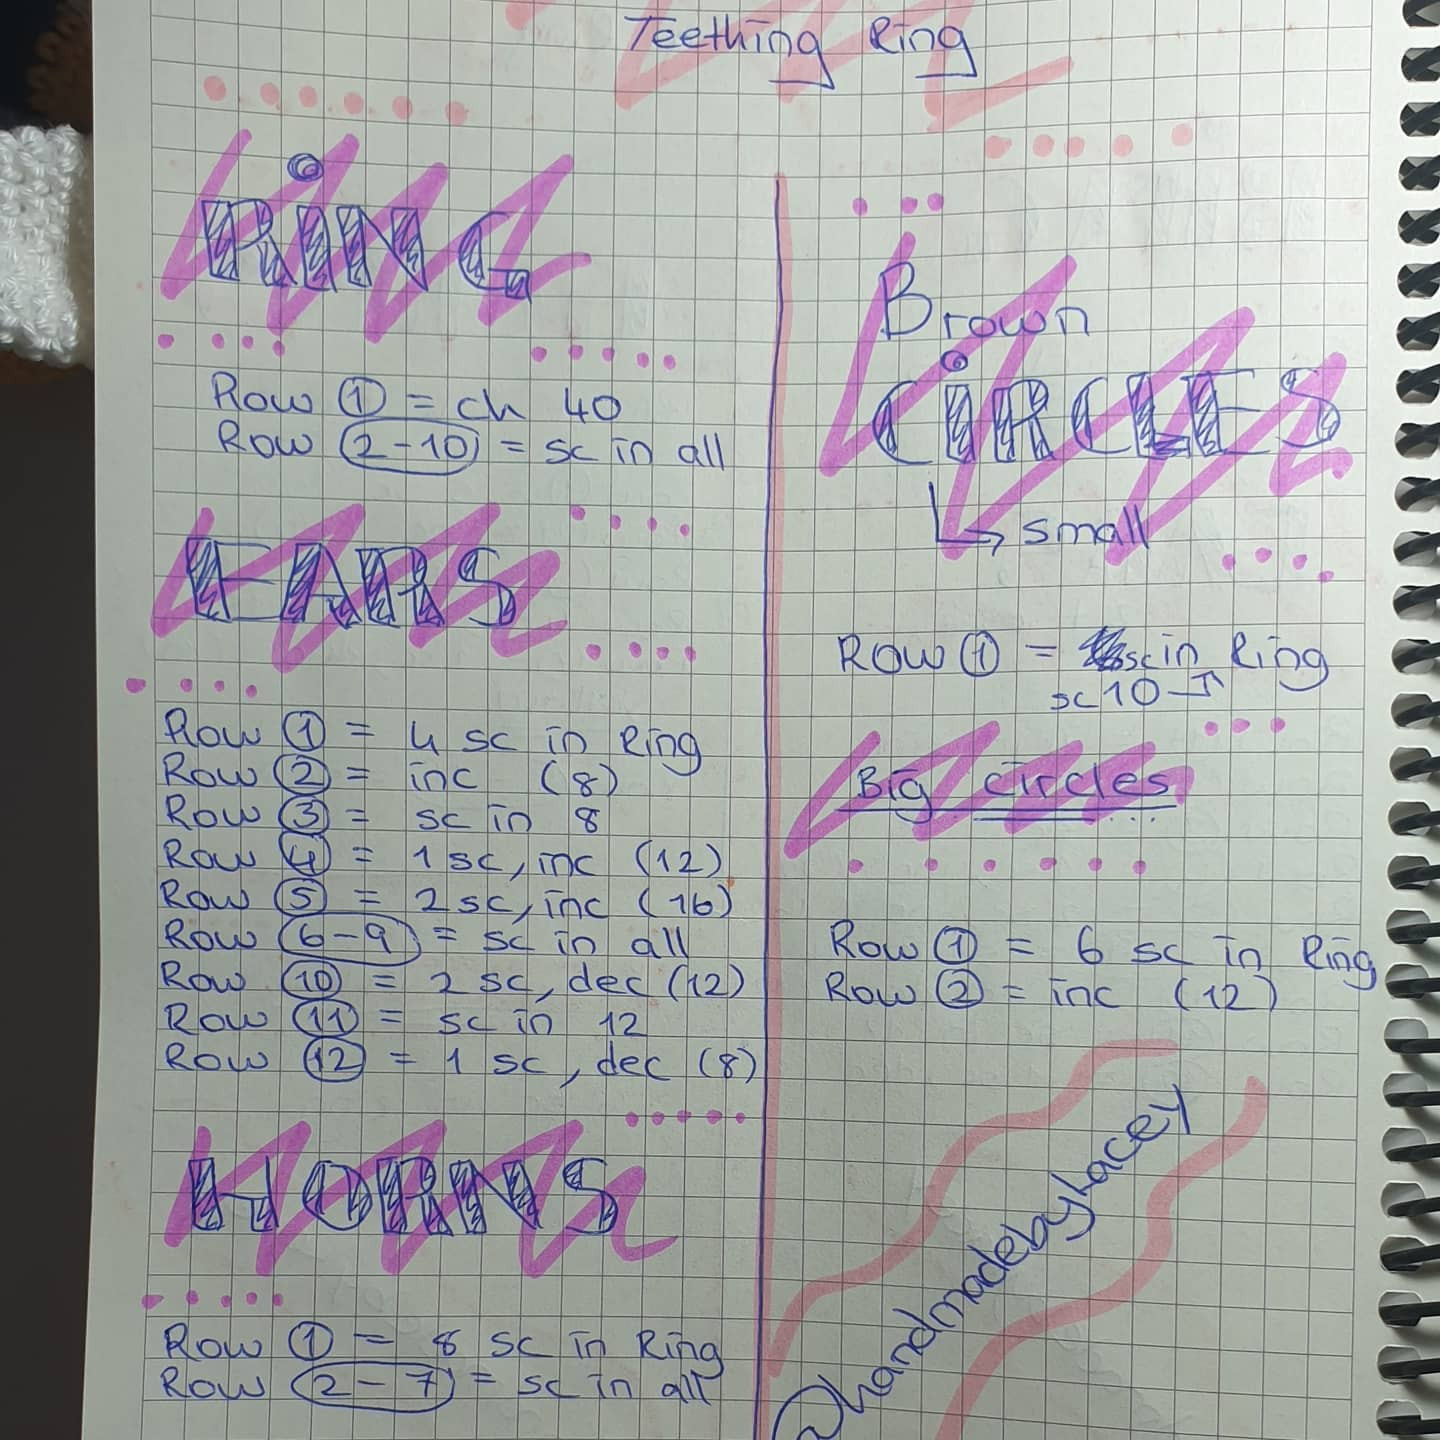 Teething Ring
RiNG
Row 1 = ch 40
Row 2-10 = sc in all
EARS
Row 1 = 4 sc in Ring
Row 2 = inc (8)
Row 3 = sc in 8
Row 4 = 1 sc, inc (12)
Row 5 = 2 sc, inc (16)
Row 6-9 = sc in all
Row 10 = 2 sc, dec (12)
Row 11 = sc in 12
Row 12 = 1 sc, dec (8)
HORNS
Row 1 = 8 sc in Ring
Row 2-7 = sc in all
Brown
CiRCLES
small
Row 1 = sc in Ring
sc 10
Big circles
Row 1 = 6 sc in Ring
Row 2 = inc (12)
@handmadebylacey